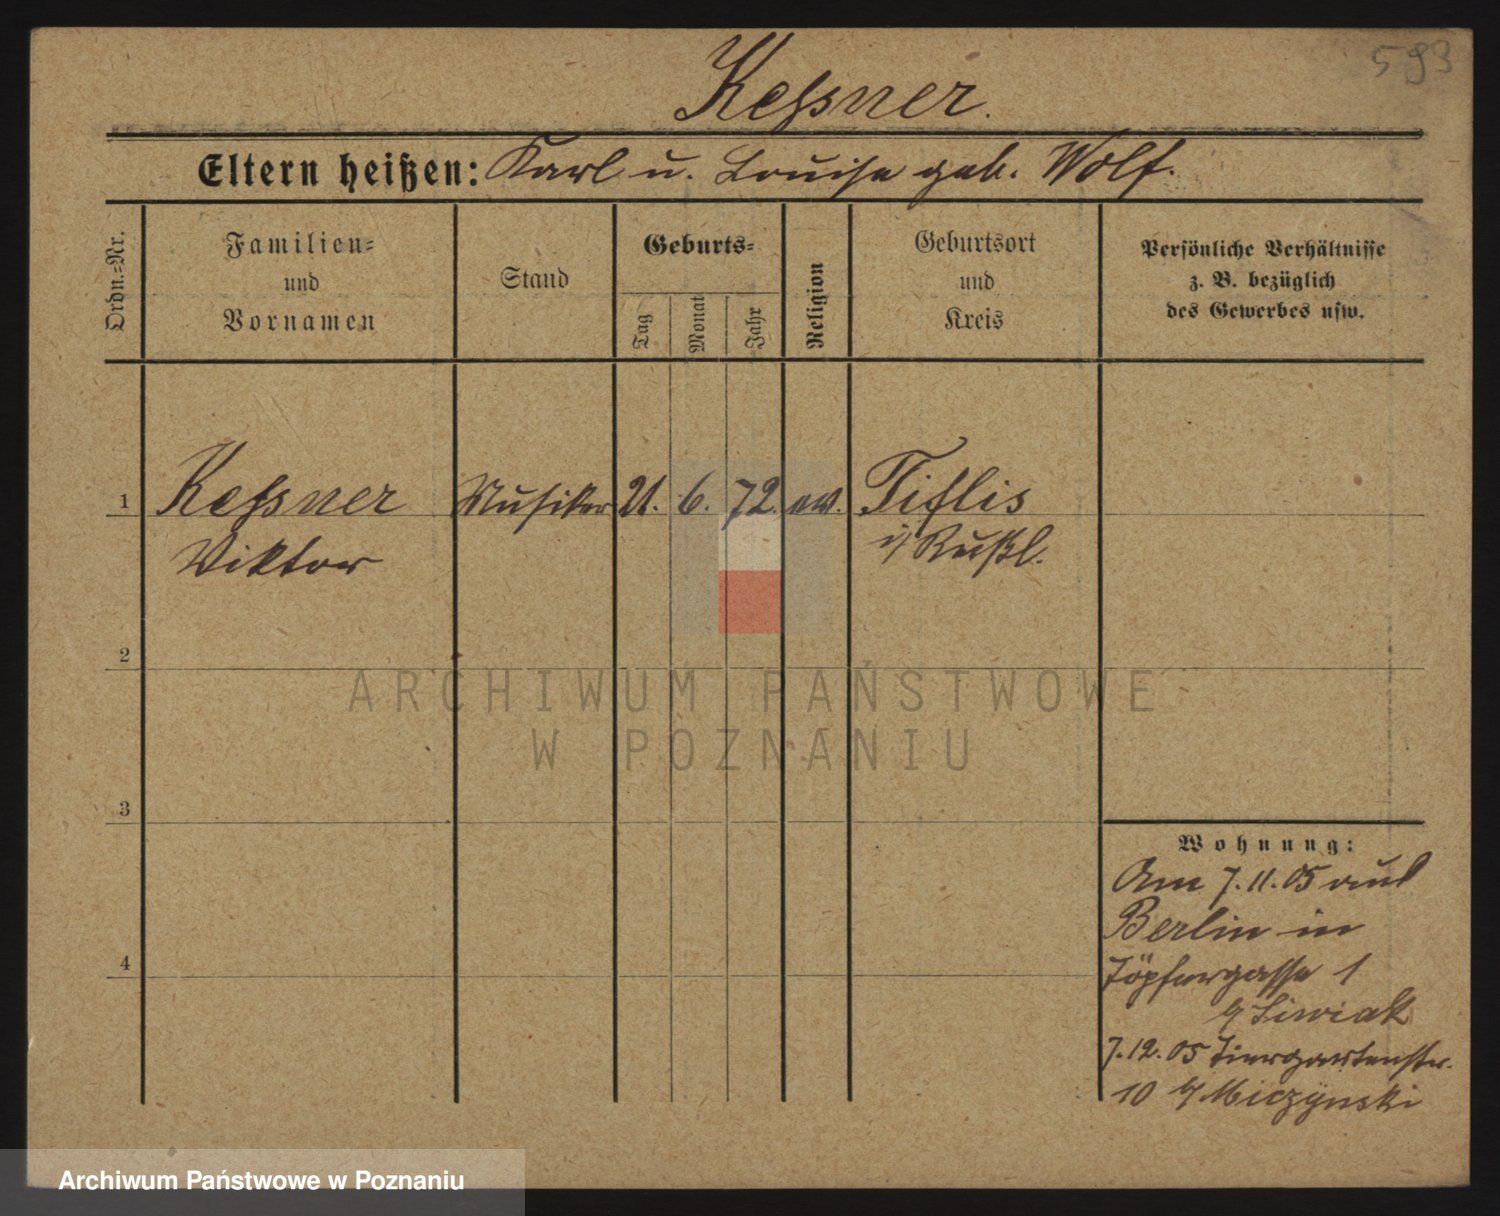 593
Keßner.
Eltern heißen: Karl u. Louise geb. Wolf.
Ordn.=Nr.
Familien=
und
Vornamen
Stand
Geburts=
Tag
Monat
Jahr
Religion
Geburtsort
und
Kreis
Persönliche Verhältnisse
z. B. bezüglich
des Gewerbes usw.
1 Keßner Musiker 21. 6. 72. ev. Tiflis
Viktor i/ Rußl.
2
3
4
Wohnung:
Am 7.11.05 aus
Berlin in
Töpfergasse 1
b/ Siwiak
7.12.05 Tiergartenstr.
10 b/ Miczynski
ARCHIWUM PAŃSTWOWE
W POZNANIU
Archiwum Państwowe w Poznaniu